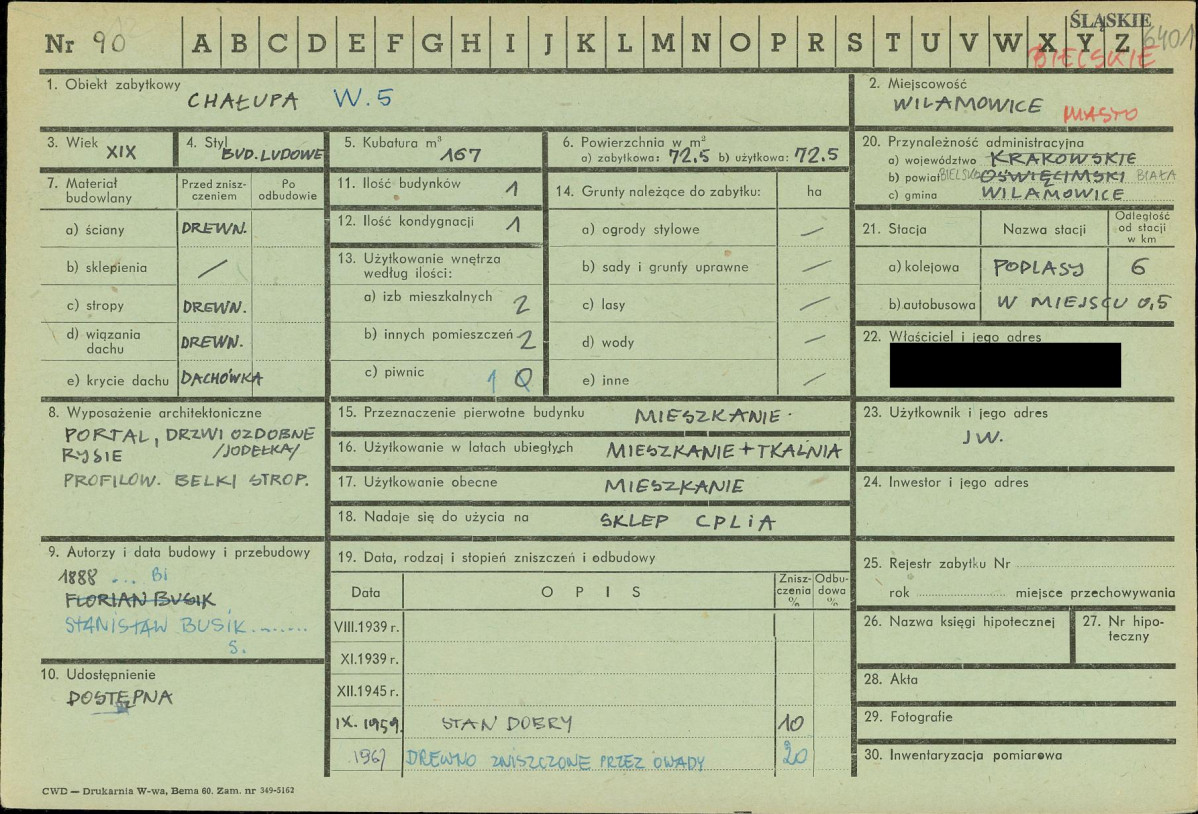 ŚLĄSKIE
Nr 90 A B C D E F G H I J K L M N O P R S T U V W X Y Z 6401
BIELSKIE
1. Obiekt zabytkowy
CHAŁUPA W. 5
2. Miejscowość
WILAMOWICE MIASTO
3. Wiek XIX
4. Styl BUD. LUDOWE
5. Kubatura m³ 167
6. Powierzchnia w m²
a) zabytkowa: 72.5 b) użytkowa: 72.5
20. Przynależność administracyjna
a) województwo KRAKOWSKIE
b) powiat BIELSKO OŚWIĘCIMSKI BIAŁA
c) gmina WILAMOWICE
7. Materiał budowlany
Przed znisz-
czeniem
Po
odbudowie
a) ściany DREWN.
b) sklepienia /
c) stropy DREWN.
d) wiązania
dachu DREWN.
e) krycie dachu DACHÓWKA
11. Ilość budynków 1
12. Ilość kondygnacji 1
13. Użytkowanie wnętrza
według ilości:
a) izb mieszkalnych 2
b) innych pomieszczeń 2
c) piwnic 1 0
14. Grunty należące do zabytku: ha
a) ogrody stylowe —
b) sady i grunty uprawne —
c) lasy —
d) wody —
e) inne —
21. Stacja Nazwa stacji
Odległość
od stacji
w km
a) kolejowa PODLASY 6
b) autobusowa W MIEJSCU 0,5
22. Właściciel i jego adres
8. Wyposażenie architektoniczne
PORTAL, DRZWI OZDOBNE
RYSIE /JODEŁKA/
PROFILOW. BELKI STROP.
15. Przeznaczenie pierwotne budynku MIESZKANIE
16. Użytkowanie w latach ubiegłych MIESZKANIE + TKALNIA
17. Użytkowanie obecne MIESZKANIE
18. Nadaje się do użycia na SKLEP CPLiA
23. Użytkownik i jego adres
JW.
24. Inwestor i jego adres
9. Autorzy i data budowy i przebudowy
1888 ... BI
FLORIAN BUSIK
STANISŁAW BUSIK........
S.
10. Udostępnienie
DOSTĘPNA
19. Data, rodzaj i stopień zniszczeń i odbudowy
Data OPIS
Znisz-
czenia
%
Odbu-
dowa
%
VIII.1939 r.
XI.1939 r.
XII.1945 r.
IX. 1959. STAN DOBRY 10
1967 DREWNO ZNISZCZONE PRZEZ OWADY 20
25. Rejestr zabytku Nr
rok miejsce przechowywania
26. Nazwa księgi hipotecznej
27. Nr hipo-
teczny
28. Akta
29. Fotografie
30. Inwentaryzacja pomiarowa
CWD — Drukarnia W-wa, Bema 60. Zam. nr 349-5162